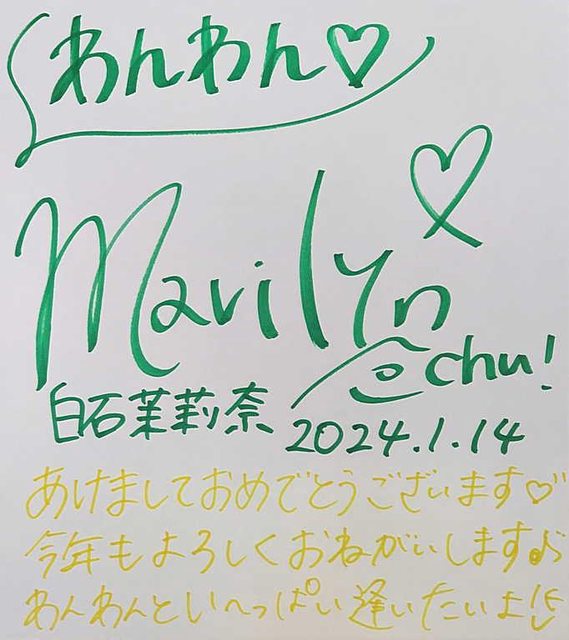 わんわん♡
Marilyn♡
chu!
白石茉莉奈
2024.1.14
あけましておめでとうございます♡
今年もよろしくおねがいします♪
わんわんといーっぱい逢いたいよ!!